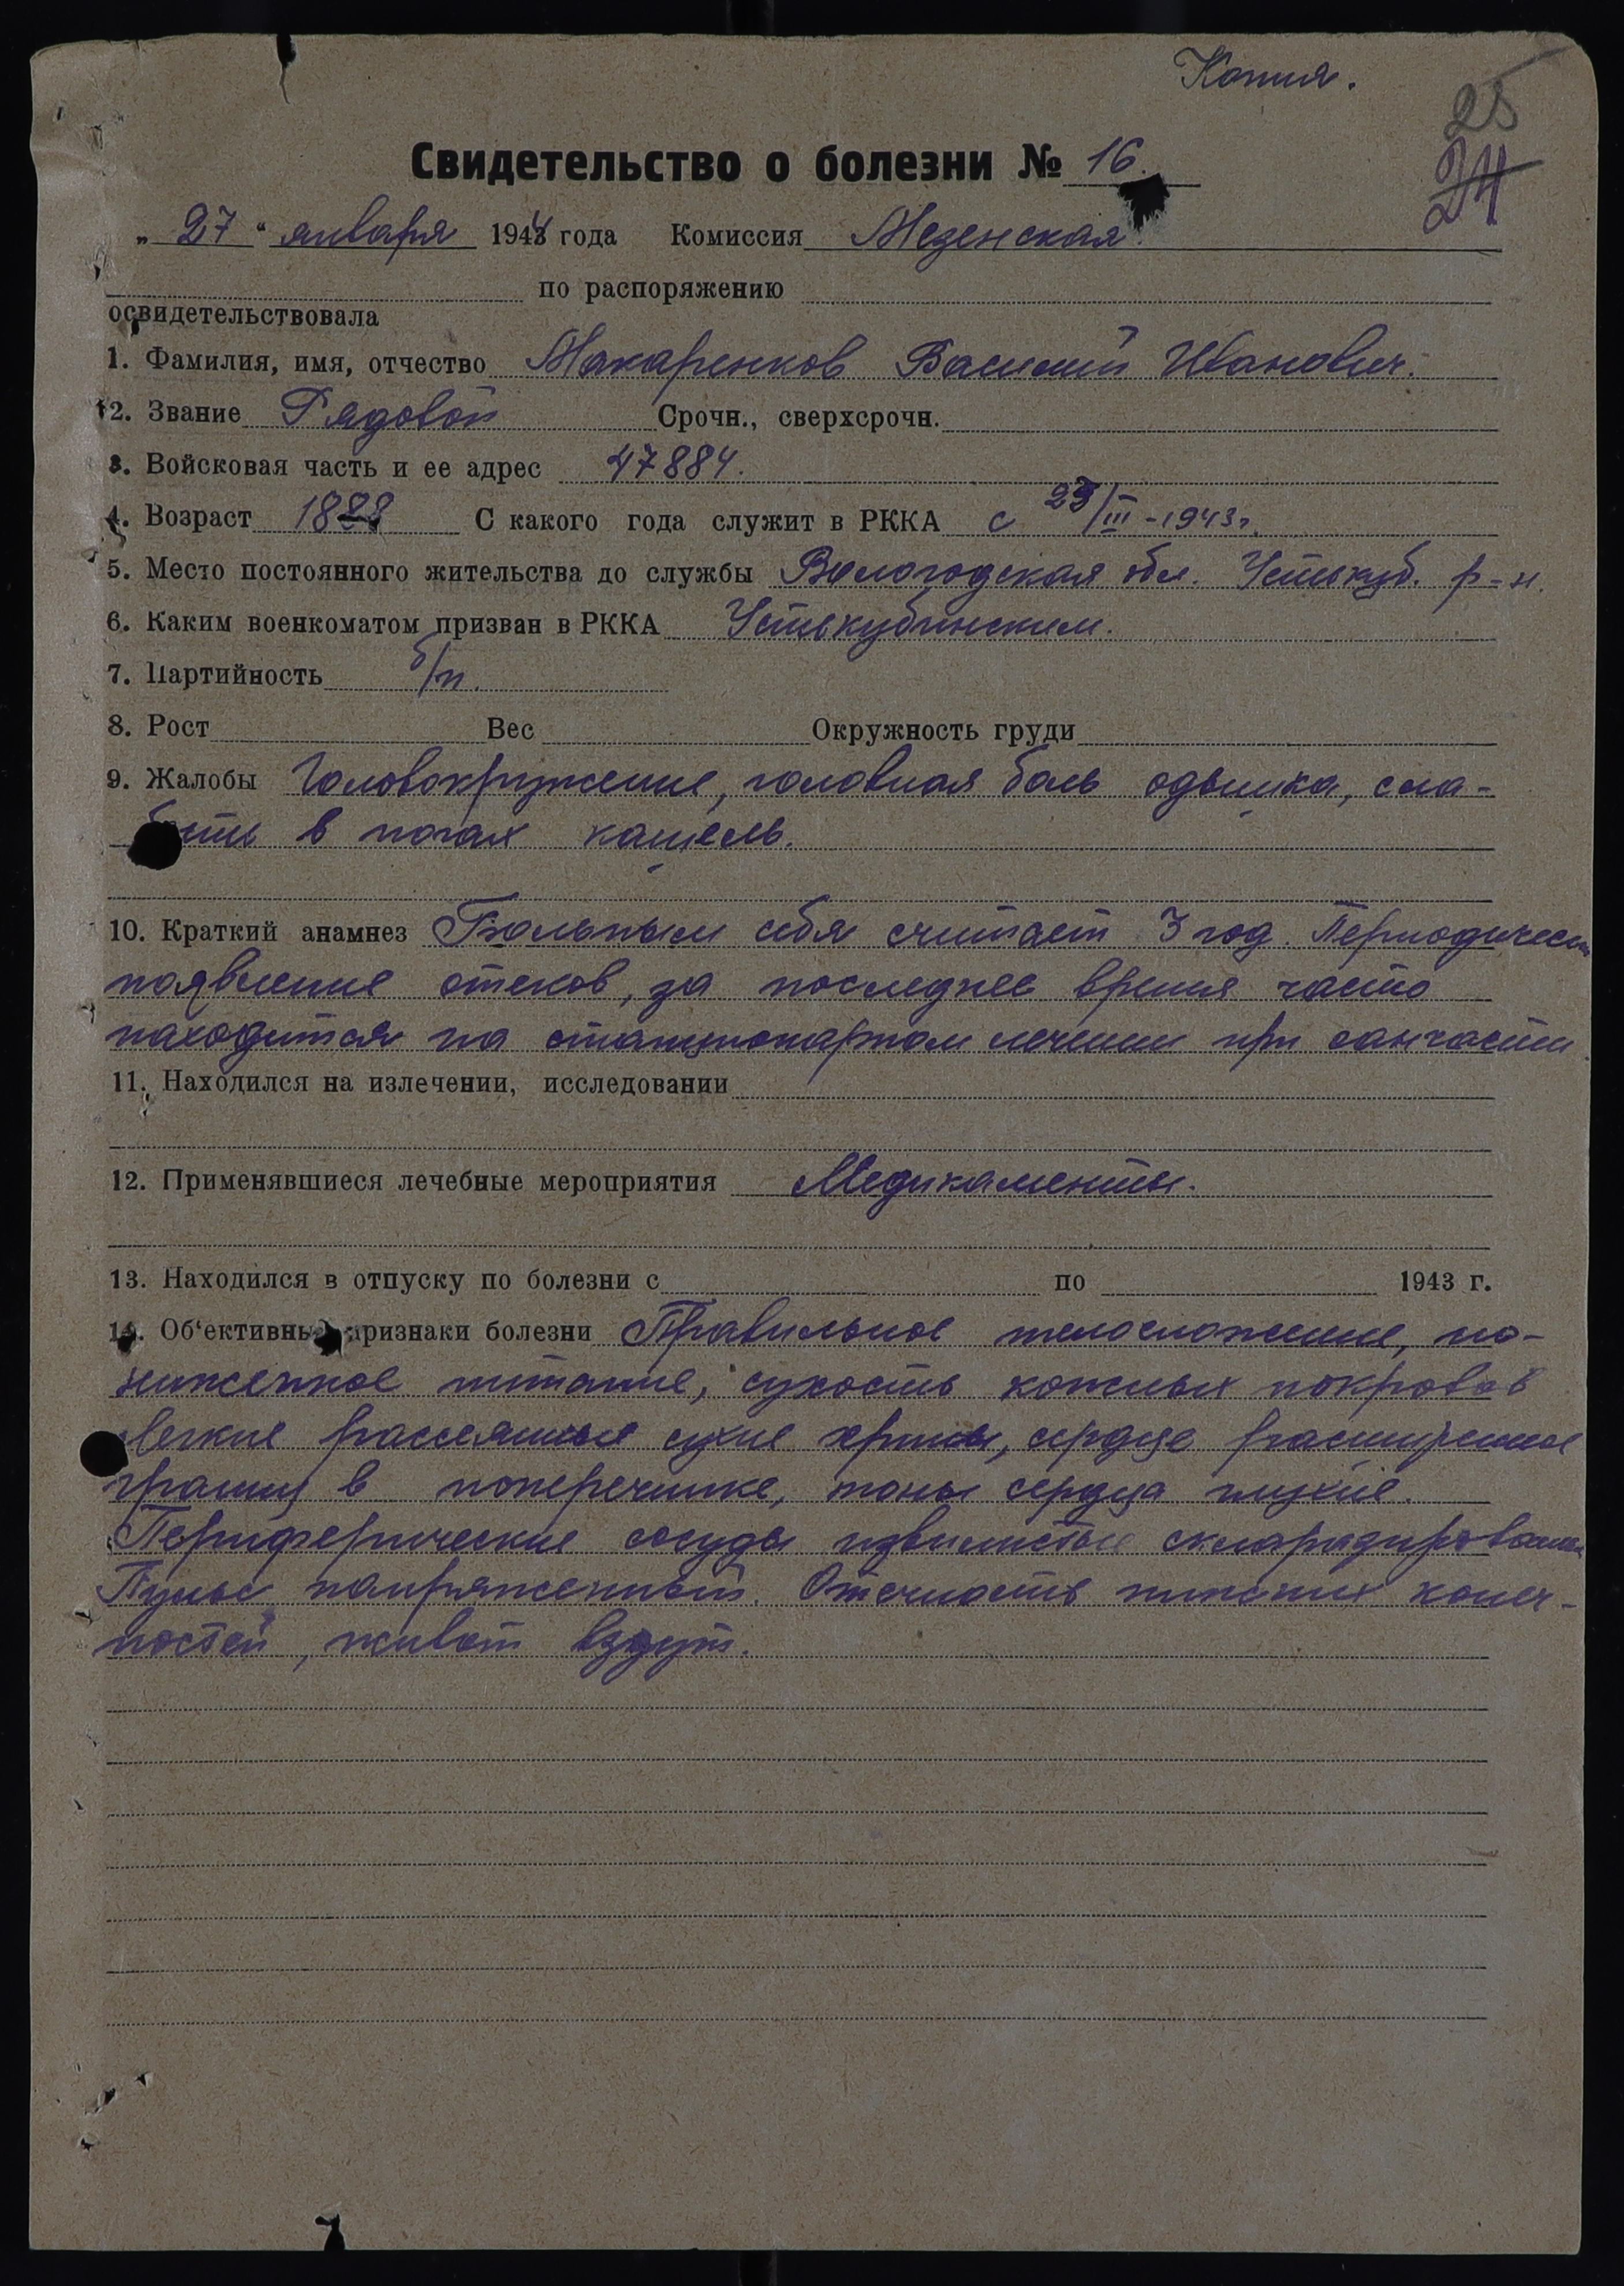 Копия.
25
24
Свидетельство о болезни № 16.
„ 27 “ января 1944 года Комиссия Мезенская
по распоряжению
освидетельствовала
1. Фамилия, имя, отчество Макаренков Василий Иванович.
2. Звание Рядовой Срочн., сверхсрочн.
3. Войсковая часть и ее адрес 47884.
4. Возраст С какого года служит в РККА с 23/III-1943г.
5. Место постоянного жительства до службы Вологодская обл. Устькуб. р-н.
6. Каким военкоматом призван в РККА Устькубинским.
7. Партийность б/п.
8. Рост Вес Окружность груди
9. Жалобы Головокружение, головная боль одышка, сла-
бость в ногах кашель.
10. Краткий анамнез Больным себя считает 3 год. Периодически
появление отеков, за последнее время часто
находится на стационарном лечении при санчасти.
11. Находился на излечении, исследовании
12. Применявшиеся лечебные мероприятия Медикаменты.
13. Находился в отпуску по болезни с по 1943 г.
14. Об'ективные признаки болезни Правильное телосложение, по-
ниженное питание, сухость кожных покровов в
легкие рассеянные сухие хрипы, сердце расширенное
границ в поперечнике, тоны сердца глухие.
Периферические сосуды извилистые
Пульс напряженный. Отечность нижних конеч-
ностей, живот вздут.